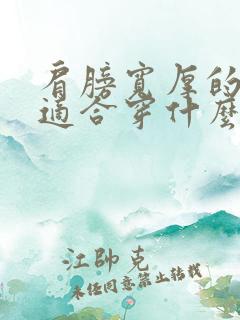 肩膀寬厚的
適合穿什麼
江帥克
未经同意禁止转载